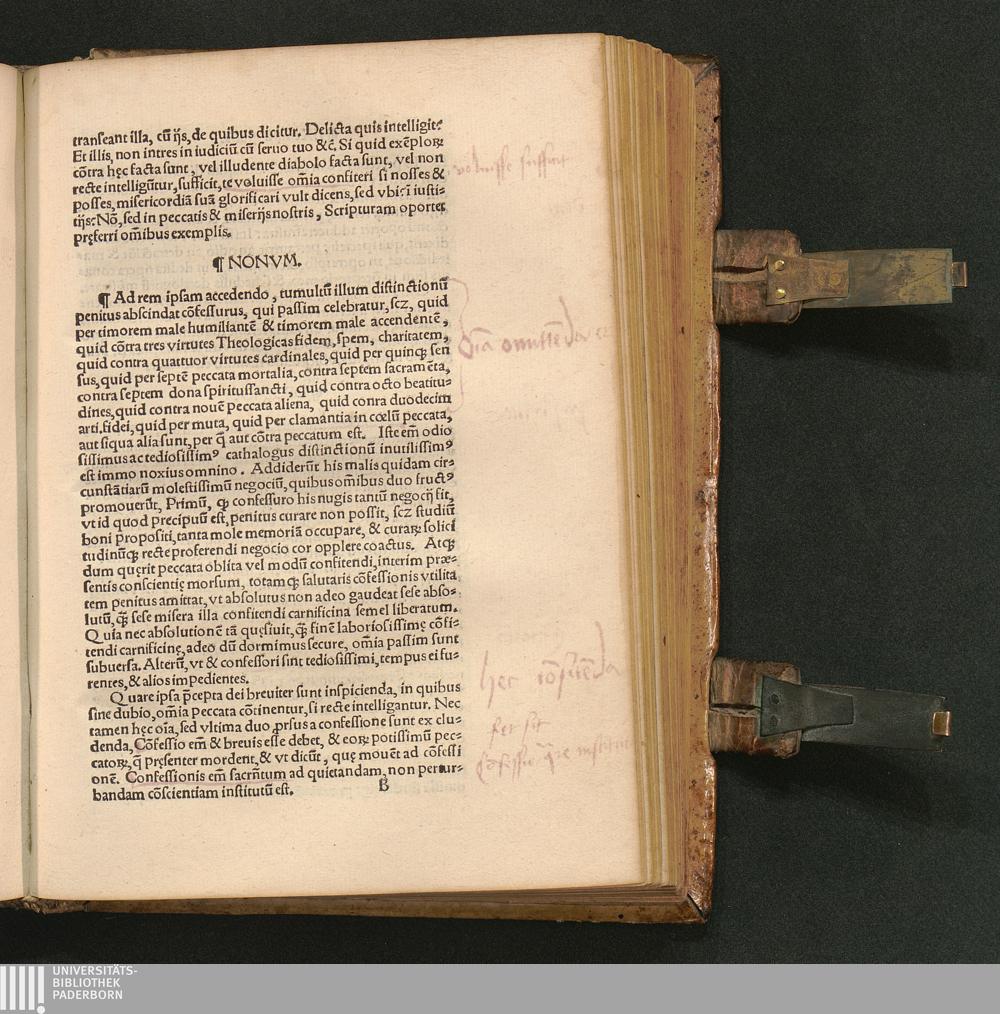 transeant illa, cũ ijs, de quibus dicitur. Delicta quis intelligit?
Et illis, non intres in iudiciũ cũ seruo tuo &c̃. Si quid exẽploꝝ
cõtra hęc facta sunt, vel illudente diabolo facta sunt, vel non
recte intelligũtur, sufficit, te voluisse om̃ia confiteri si nosses &
posses, misericordiã suã glorificari vult dicens, sed vbi? ĩ iusti-
tijs? Nõ, sed in peccatis & miserijs nostris, Scripturam oportet
pręferri om̃ibus exemplis.
¶ NONVM.
¶ Ad rem ipsam accedendo, tumultũ illum distinctionũ
penitus abscindat cõfessurus, qui passim celebratur, scz, quid
per timorem male humiliantẽ & timorem male accendentẽ,
quid cõtra tres virtutes Theologicas fidem, spem, charitatem,
quid contra quattuor virtutes cardinales, quid per quinqꝫ sen
sus, quid per septẽ peccata mortalia, contra septem sacramẽta,
contra septem dona spiritussancti, quid contra octo beatitu-
dines, quid contra nouẽ peccata aliena, quid conra duodecim
arti. fidei, quid per muta, quid per clamantia in cœlũ peccata,
aut siqua alia sunt, per q̃ aut cõtra peccatum est. Iste em̃ odio
sissimus ac tediosissimꝰ cathalogus distinctionũ inutilissimꝰ
est immo noxius omnino. Addiderũt his malis quidam cir-
cunstãtiarũ molestissimũ negociũ, quibus om̃ibus duo fructꝰ
promouerũt, Primũ, ꝙ confessuro his nugis tantũ negocij fit,
vt id quod precipuũ est, penitus curare non possit, scz studiũ
boni propositi, tanta mole memoriã occupare, & curaꝝ solici
tudinũqꝫ recte proferendi negocio cor opplere coactus. Atqꝫ
dum quęrit peccata oblita vel modũ confitendi, interim præ-
sentis conscientię morsum, totamqꝫ salutaris cõfessionis vtilita
tem penitus amittat, vt absolutus non adeo gaudeat sese abso-
lutũ, q̃ꝫ sese misera illa confitendi carnificina semel liberatum.
Quia nec absolutionẽ tã quęsiuit, q̃ꝫ finẽ laboriosissimę cõfi-
tendi carnificinę, adeo dũ dormimus secure, om̃ia passim sunt
subuersa. Alterũ, vt & confessori sint tediosissimi, tempus ei fu-
rentes, & alios impedientes.
Quare ipsa p̃cepta dei breuiter sunt inspicienda, in quibus
sine dubio, om̃ia peccata cõtinentur, si recte intelligantur. Nec
tamen hęc oĩa, sed vltima duo ꝓrsus a confessione sunt ex clu-
denda, Cõfessio em̃ & breuis esse debet, & eoꝝ potissimũ pec-
catoꝝ, q̃ pręsenter mordent, & vt dicũt, quę mouẽt ad cõfessi
onẽ. Confessionis em̃ sacrm̃tum ad quietandam, non pertur-
bandam cõscientiam institutũ est.
B
UNIVERSITÄTS-
BIBLIOTHEK
PADERBORN